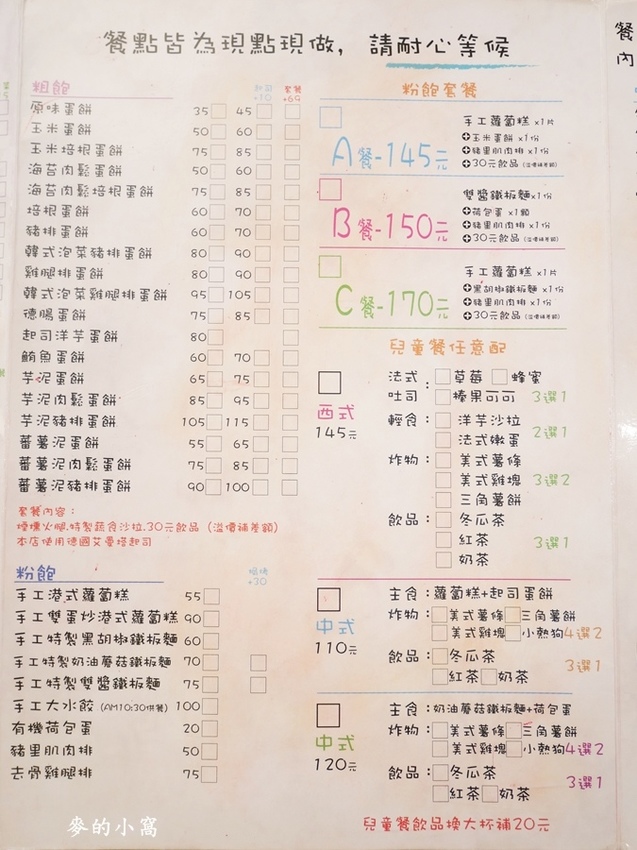 餐點皆為現點現做，請耐心等候
粗飽
起司+10
套餐+69
原味蛋餅 35 45
玉米蛋餅 50 60
玉米培根蛋餅 75 85
海苔肉鬆蛋餅 50 60
海苔肉鬆培根蛋餅 75 85
培根蛋餅 60 70
豬排蛋餅 60 70
韓式泡菜豬排蛋餅 80 90
雞腿排蛋餅 80 90
韓式泡菜雞腿排蛋餅 95 105
德腸蛋餅 75 85
起司洋芋蛋餅 80
鮪魚蛋餅 60 70
芋泥蛋餅 65 75
芋泥肉鬆蛋餅 85 95
芋泥豬排蛋餅 105 115
蕃薯泥蛋餅 55 65
蕃薯泥肉鬆蛋餅 75 85
蕃薯泥豬排蛋餅 90 100
套餐內容：
煙燻火腿.特製蔬食沙拉.30元飲品（溢價補差額）
本店使用德國艾曼塔起司
粉飽
+30
手工港式蘿蔔糕 55
手工雙蛋炒港式蘿蔔糕 90
手工特製黑胡椒鐵板麵 60
手工特製奶油蘑菇鐵板麵 70
手工特製雙醬鐵板麵 75
手工大水餃（AM10:30供餐）100
有機荷包蛋 20
豬里肌肉排 50
去骨雞腿排 75
粉飽套餐
A餐-145元
手工蘿蔔糕 x1片
+玉米蛋餅 x1份
+豬里肌肉排 x1份
+30元飲品（溢價補差額）
B餐-150元
雙醬鐵板麵x1份
+荷包蛋 x1顆
+豬里肌肉排 x1份
+30元飲品（溢價補差額）
C餐-170元
手工蘿蔔糕 x1片
+黑胡椒鐵板麵 x1份
+豬里肌肉排 x1份
+30元飲品（溢價補差額）
兒童餐任意配
西式
145元
法式吐司： 草莓 蜂蜜
榛果可可 3選1
輕食： 洋芋沙拉
法式嫩蛋 2選1
炸物： 美式薯條
美式雞塊 3選2
三角薯餅
飲品： 冬瓜茶
紅茶 3選1
奶茶
中式
110元
主食：蘿蔔糕+起司蛋餅
炸物： 美式薯條 三角薯餅
美式雞塊 小熱狗 4選2
飲品： 冬瓜茶 3選1
紅茶 奶茶
中式
120元
主食：奶油蘑菇鐵板麵+荷包蛋
炸物： 美式薯條 三角薯餅
美式雞塊 小熱狗 4選2
飲品： 冬瓜茶 3選1
紅茶 奶茶
兒童餐飲品換大杯補20元
餐
內
麥的小窩